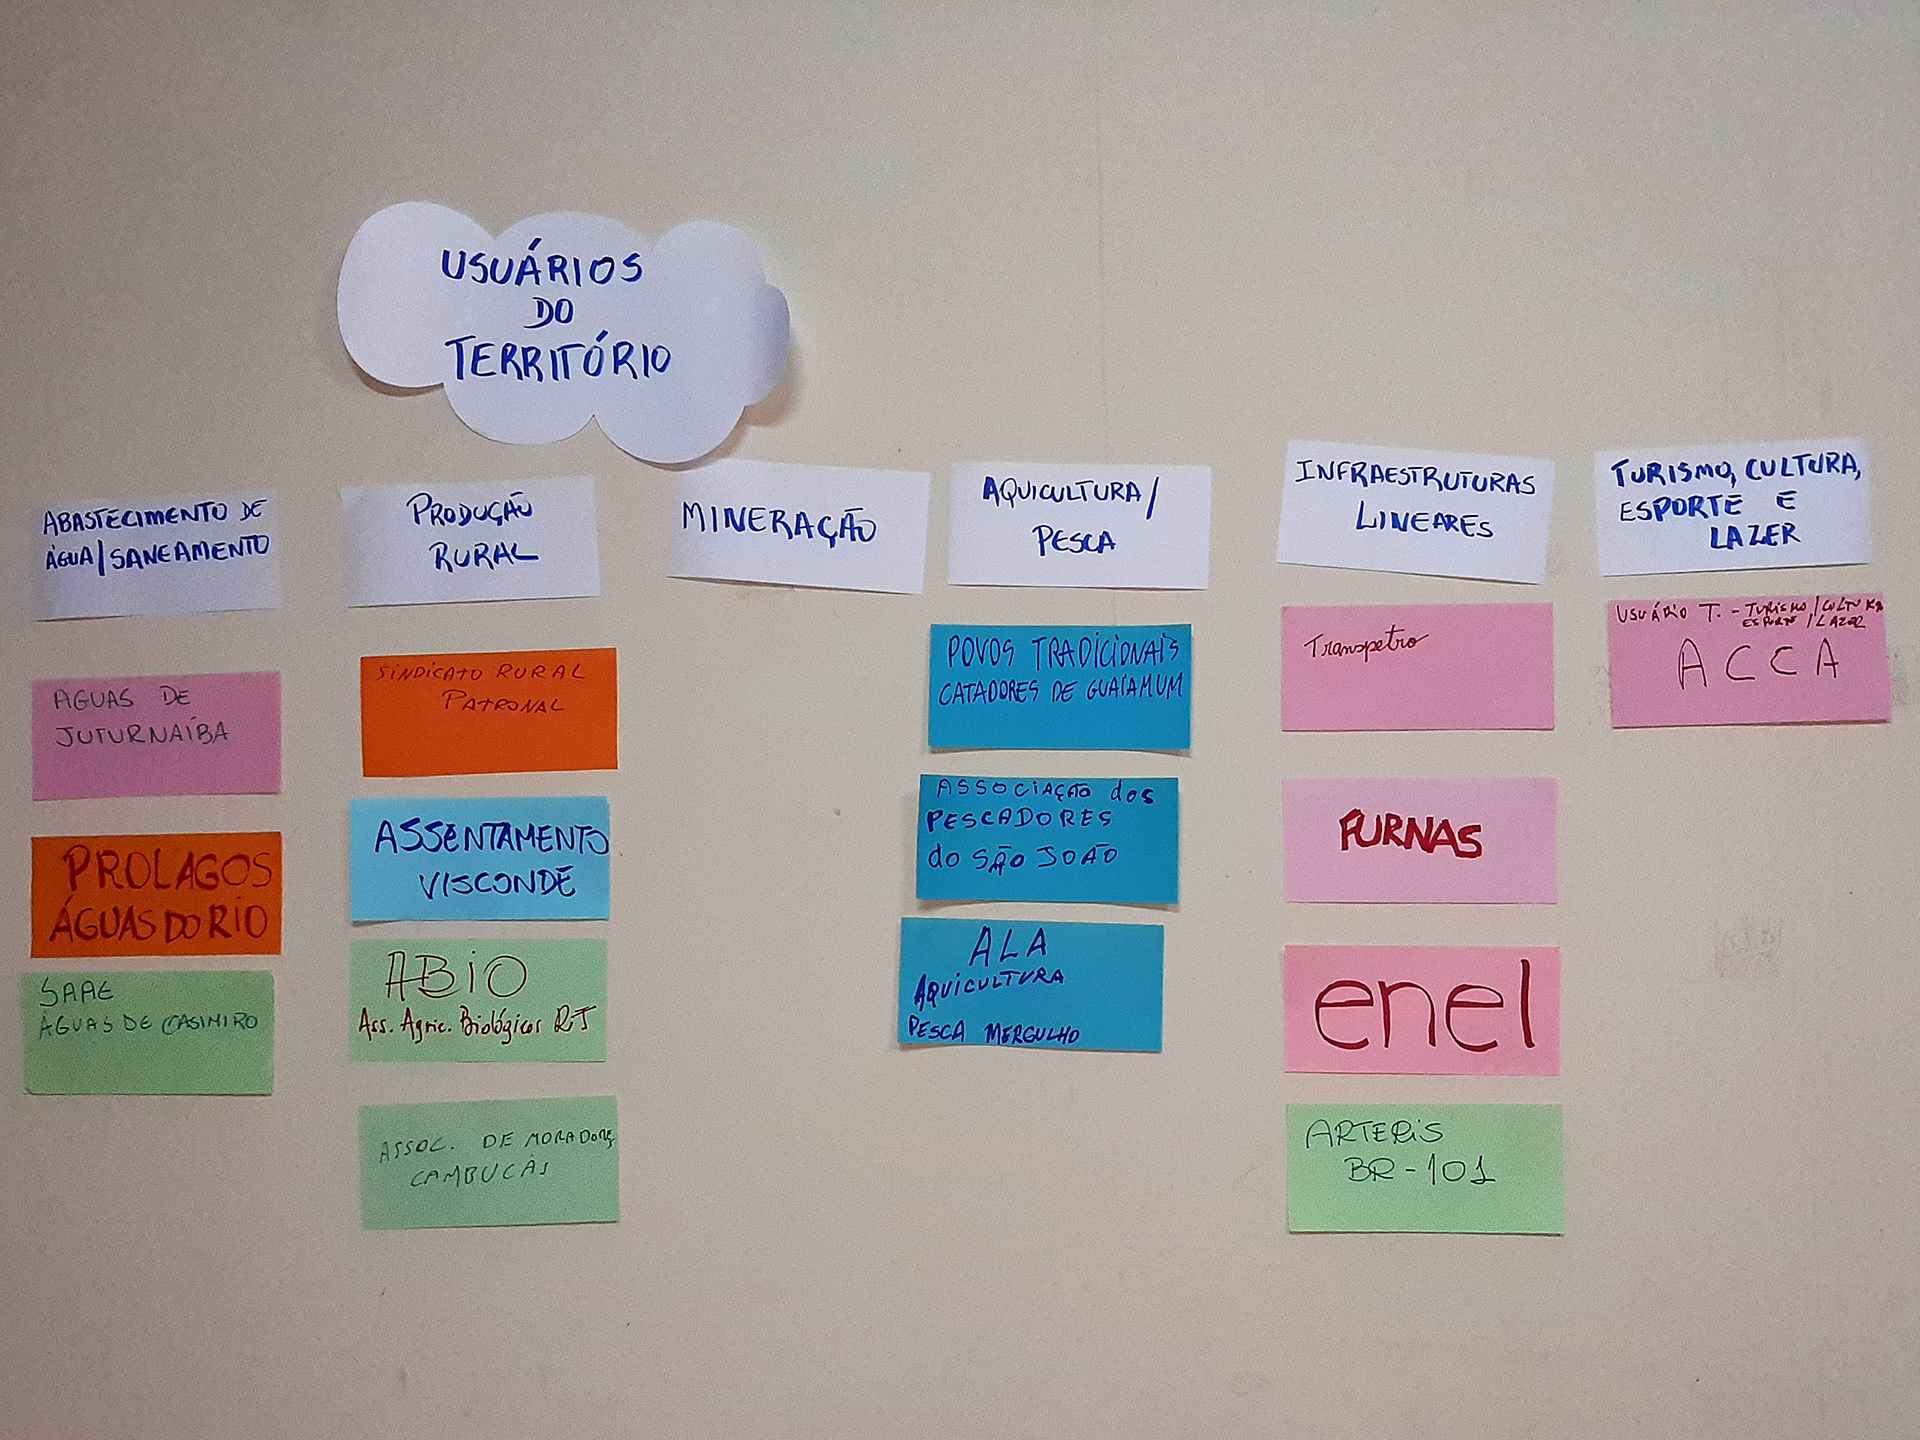 USUÁRIOS
DO
TERRITÓRIO
ABASTECIMENTO DE
ÁGUA/SANEAMENTO
ÁGUAS DE
JUTURNAÍBA
PROLAGOS
ÁGUAS DO RIO
SAAE
ÁGUAS DE CASIMIRO
PRODUÇÃO
RURAL
SINDICATO RURAL
PATRONAL
ASSENTAMENTO
VISCONDE
ABIO
Ass. Agric. Biológicos RJ
ASSOC. DE MORADORES
CAMBUCÁS
MINERAÇÃO
AQUICULTURA/
PESCA
POVOS TRADICIONAIS
CATADORES DE GUAIAMUM
ASSOCIAÇÃO dos
PESCADORES
do SÃO JOÃO
ALA
AQUICULTURA
PESCA MERGULHO
INFRAESTRUTURAS
LINEARES
Transpetro
FURNAS
enel
ARTERIS
BR-101
TURISMO, CULTURA,
ESPORTE E
LAZER
USUÁRIO T. - TURISMO/CULTURA
ESPORTE/LAZER
ACCA